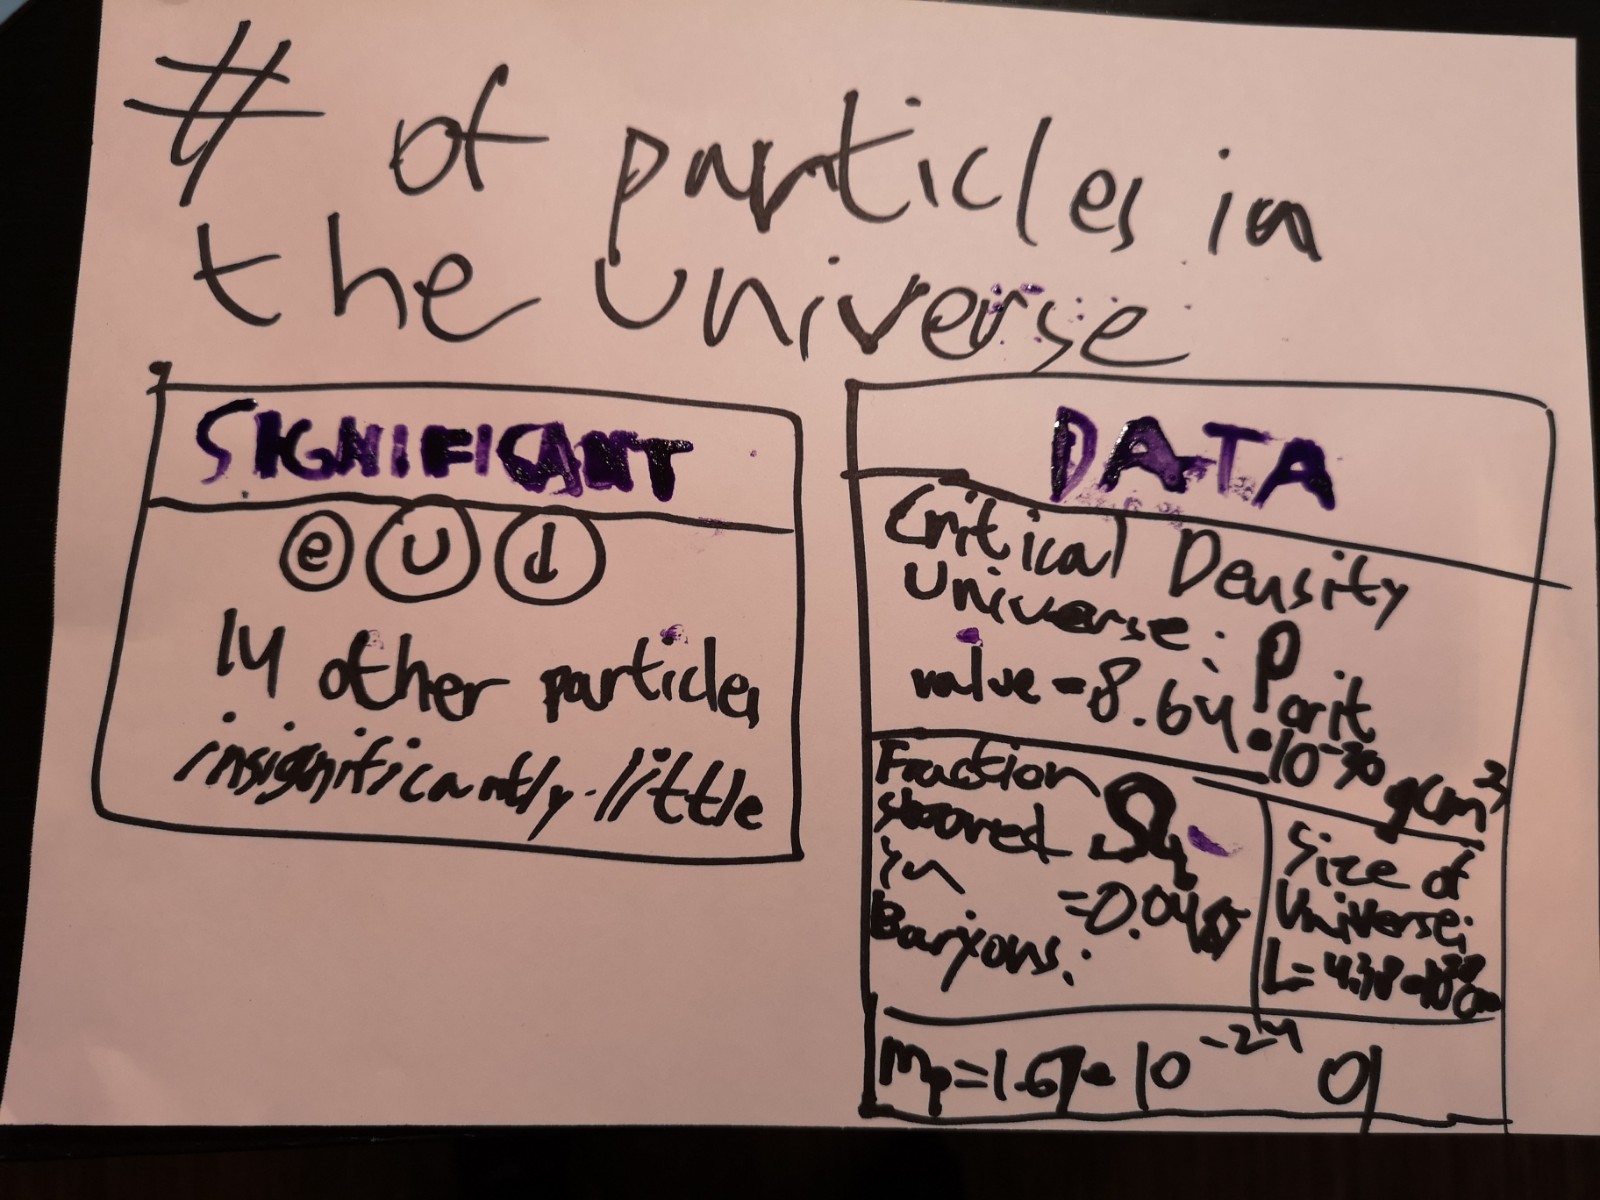 # of particles in
the universe
SIGNIFICANT
e u d
14 other particles
insignificantly little
DATA
Critical Density
Universe: ρcrit
value = 8.64 • 10⁻³⁰ gcm³
Fraction
stoored
in
Baryons:
= 0.04
Size of
Universe:
L = 4.38 • 10²⁸ cm
mp = 1.67 • 10⁻²⁴ g